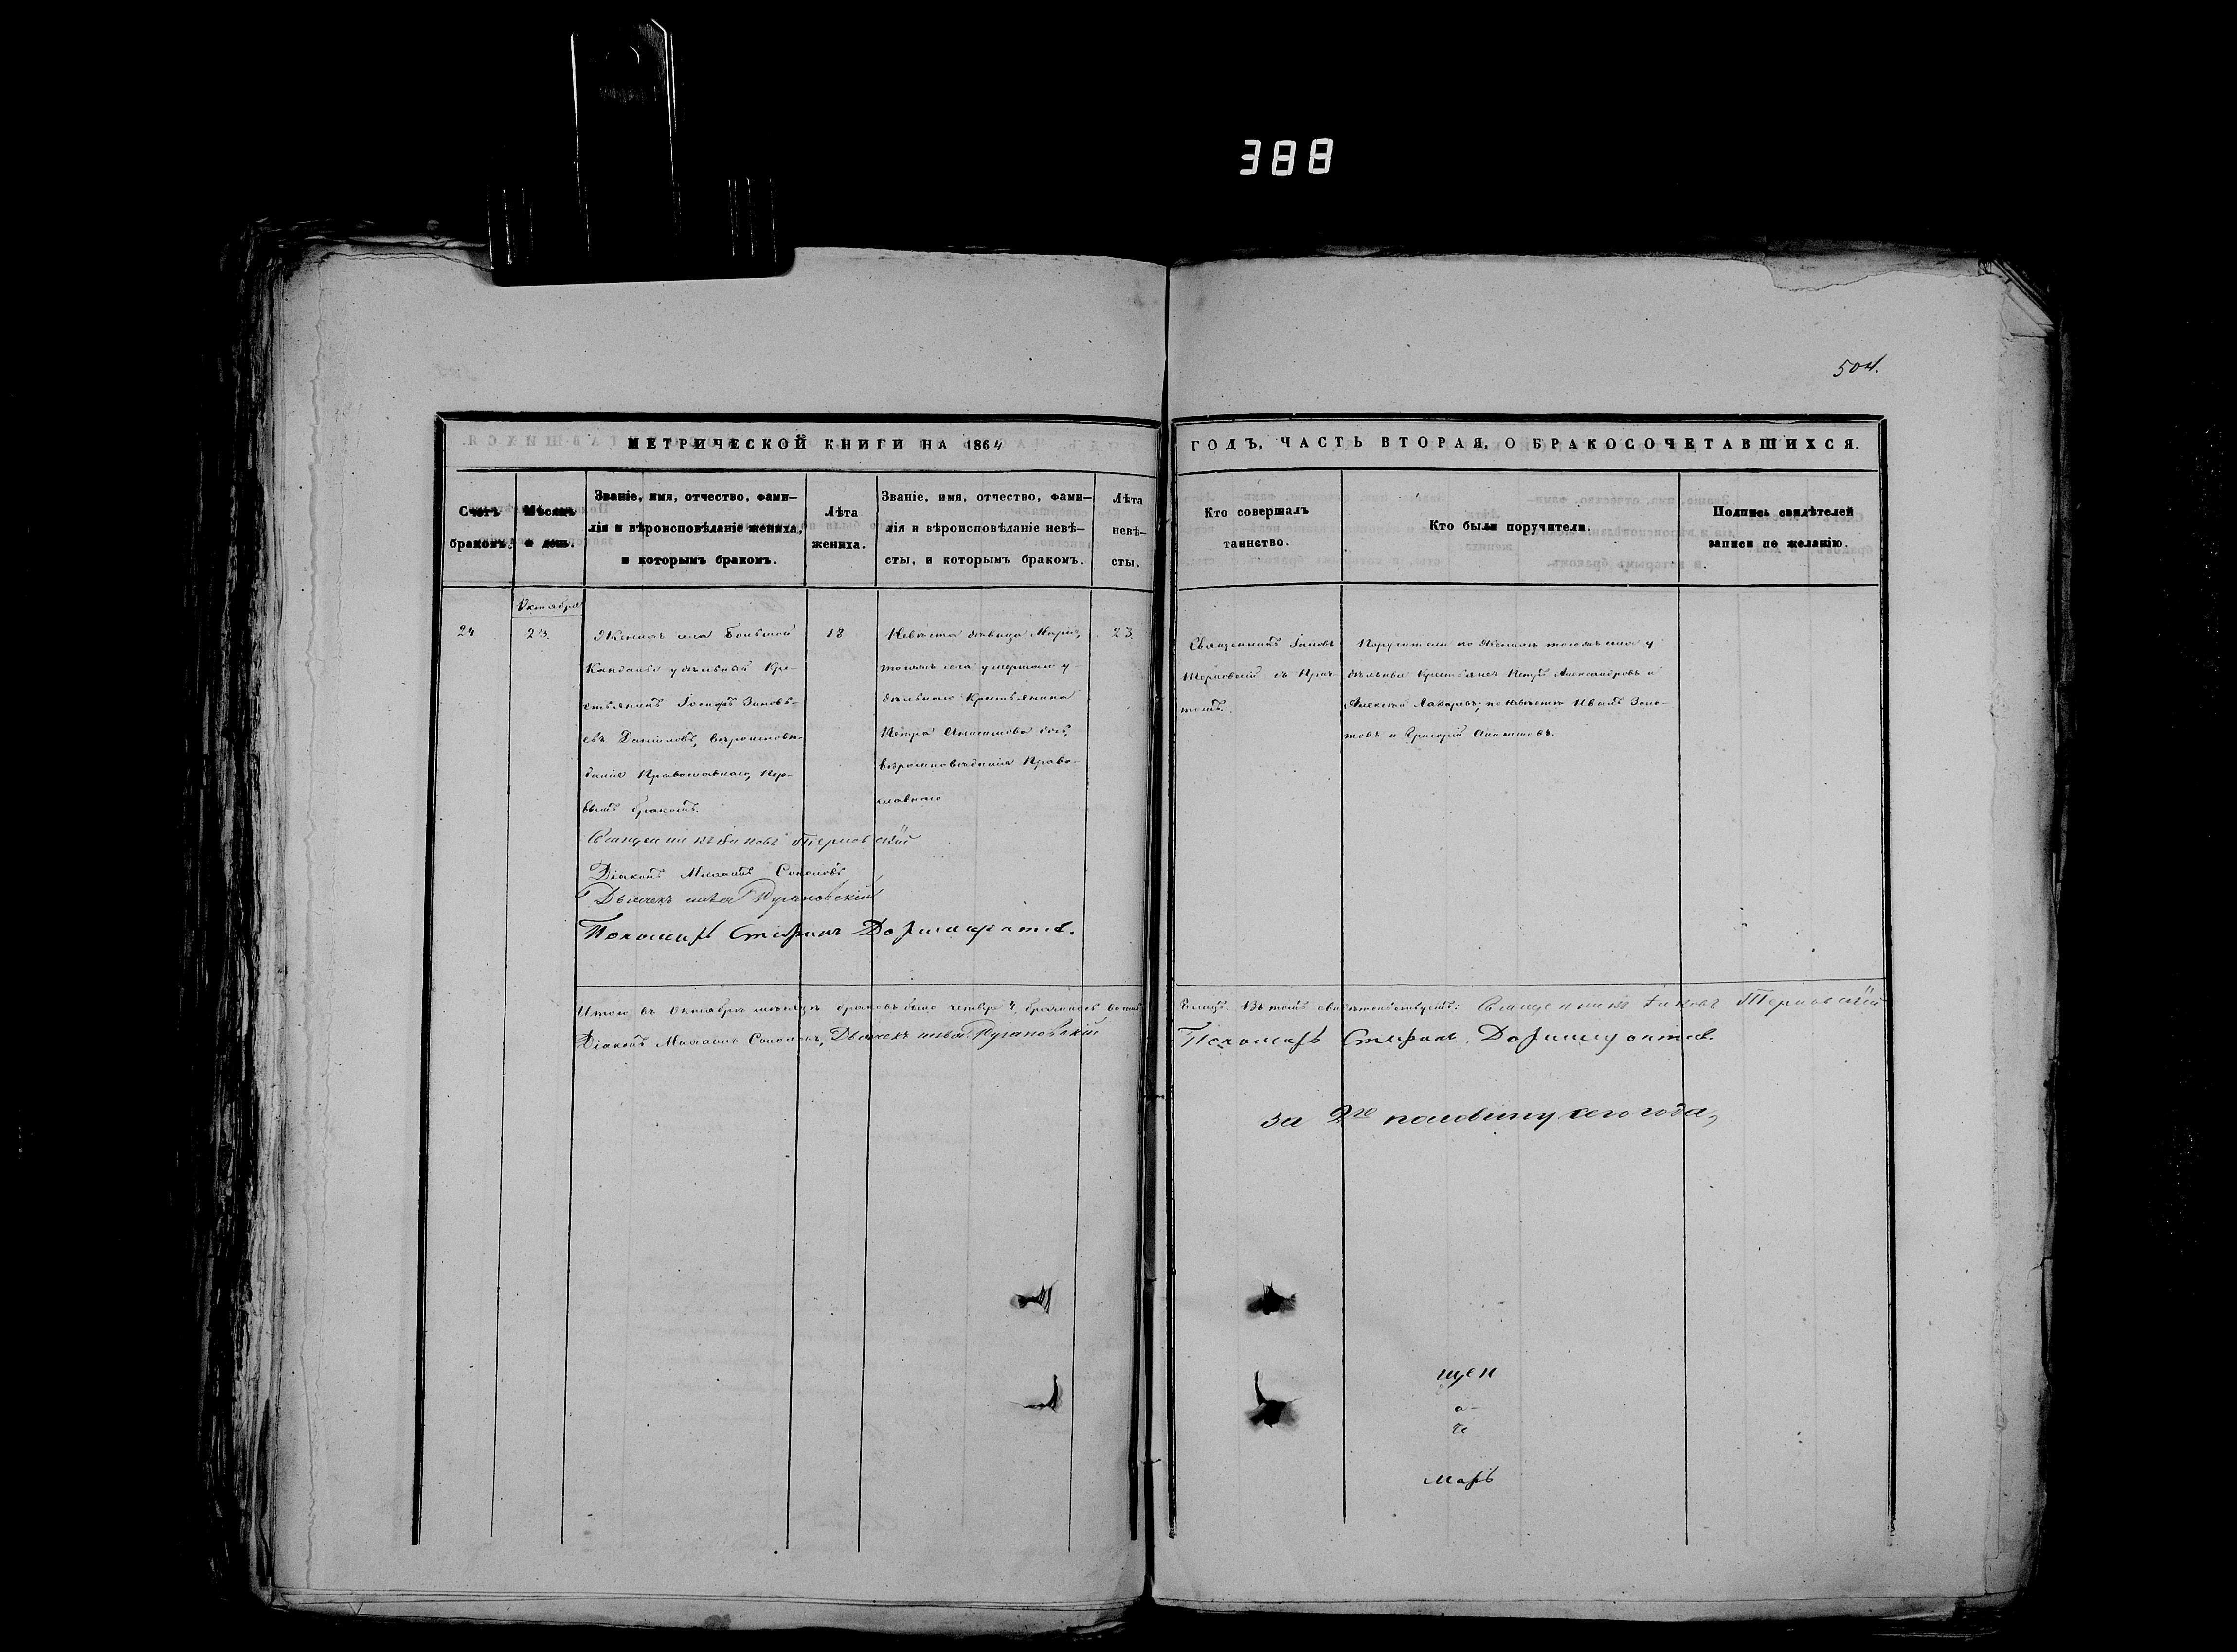 388
504.
МЕТРИЧЕСКОЙ КНИГИ НА 1864
ГОДЪ, ЧАСТЬ ВТОРАЯ, О БРАКОСОЧЕТАВШИХСЯ.
Счетъ
браковъ.
Мѣсяцъ
и день.
Званіе, имя, отчество, фами-
лія и вѣроисповѣданіе жениха,
и которымъ бракомъ.
Лѣта
жениха.
Званіе, имя, отчество, фами-
лія и вѣроисповѣданіе невѣ-
сты, и которымъ бракомъ.
Лѣта
невѣ-
сты.
Кто совершалъ
таинство.
Кто были поручители.
Подпись свидѣтелей
записи по желанію.
24
Октября
23.
Женихъ села Большой
Кандалы удѣльный Кре-
стьянинъ Іосифъ Зиновь-
евъ Даниловъ, вѣроиспове-
данія Православнаго, Пер-
вымъ бракомъ.
18
Невѣста дѣвица Марія,
тогожъ села умершаго у-
дѣльнаго Крестьянина
Петра Анисимова дочь,
вѣроисповѣданія Право-
славнаго
23.
Священникъ Іаковъ
Терновскій съ Прич-
томъ.
Поручители по Женихѣ тогожъ села у-
дѣльные Крестьяне: Петръ Александровъ и
Алексѣй Лазаревъ; по Невѣстѣ Иванъ Золо-
товъ и Григорій
Священникъ Іаковъ Терновскій
Діаконъ Михаилъ Соколовъ
Дьячекъ
Пономарь Стефанъ
Итого въ Октябрѣ мѣсяцѣ браковъ было четыре 4, брачилось восемь
8 лицъ. Въ томъ свидѣтельствуютъ: Священникъ Іаковъ Терновскій
Діаконъ Михаилъ Соколовъ, Дьячекъ
Пономарь Стефанъ
за 2ю половину сего года,
щен
а-
че
марь